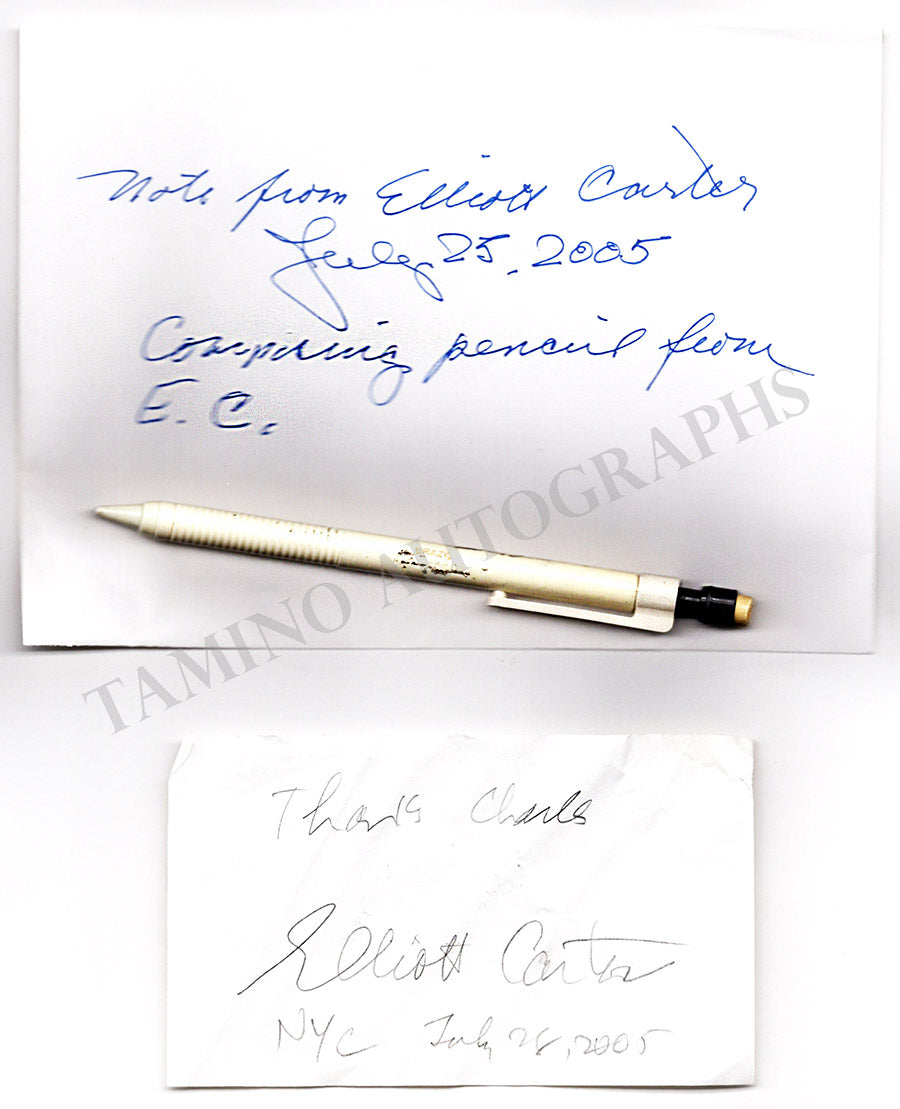 Note from Elliott Carter
July 25, 2005
Composing pencil from
E.C.
TAMINO AUTOGRAPHS
Thanks Charles
Elliott Carter
NYC July 28, 2005